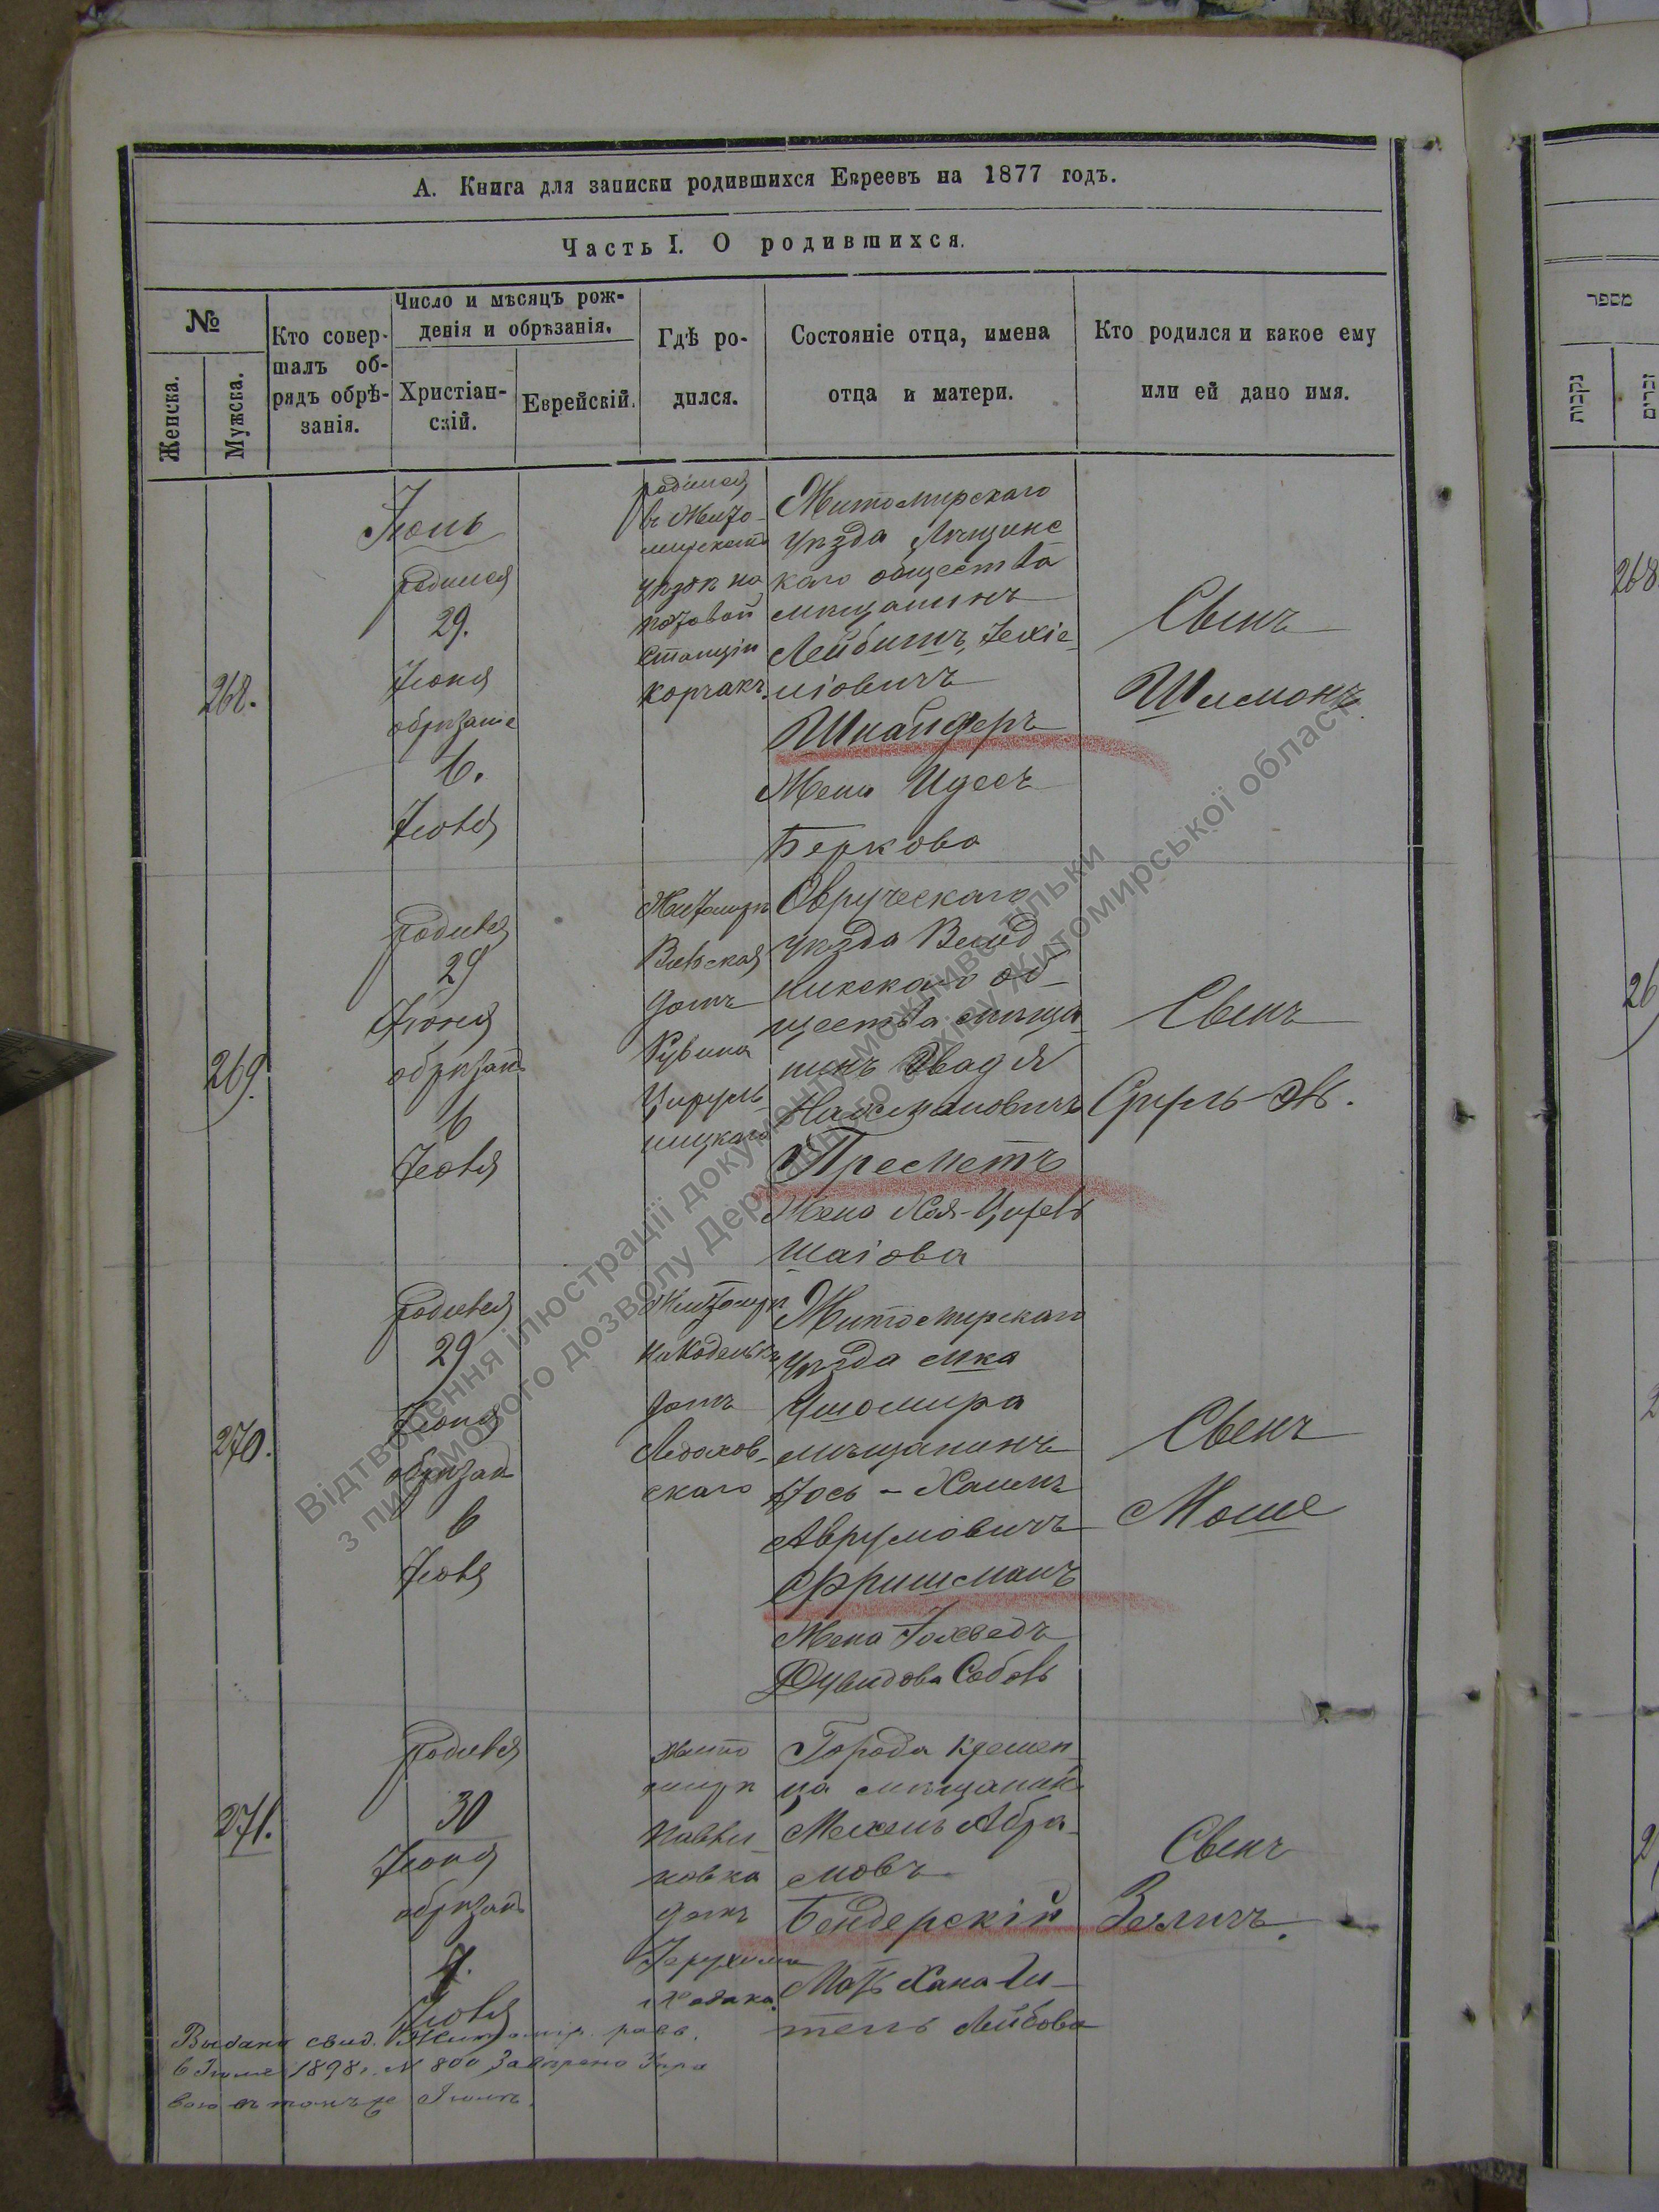 А. Книга для записки родившихся Евреевъ на 1877 годъ.
Часть I. О родившихся.
№
Женска.
Мужска.
Кто совер-
шалъ об-
рядъ обрѣ-
занія.
Число и мѣсяцъ рож-
денія и обрѣзанія.
Христіан-
скій.
Еврейскій.
Гдѣ ро-
дился.
Состояніе отца, имена
отца и матери.
Кто родился и какое ему
или ей дано имя.
מספר
נקבות
זכרים
268.
Іюнь
родился
29.
Іюня
обрѣзаніе
6.
Іюля
родился
в Жито-
мирскомъ
уѣздѣ на
почтовой
станціи
Корчакъ.
Житомирскаго
уѣзда
каго общества
мѣщанинъ
Лейбишъ Іехіе-
ліовичъ
Шнайдеръ
Жена Идесъ
Беркова
Сынъ
Шлемонъ.
268
269.
родился
29
Іюня
обрѣзанъ
6
Іюля
Житомиръ
домъ
Рувина
Цируль-
ницкаго
Овручскаго
уѣзда Велед
никскаго об-
щества мѣща-
нинъ Овадія
Нахмановичъ
Пресметъ
Жена Хая-Цирель
Шаіова
Сынъ
Сруль
26
270.
родился
29
Іюня
обрѣзан
6
Іюля
Житомиръ
домъ
Ледохов-
скаго
Житомирскаго
уѣзда мѣка
Ушомира
мѣщанинъ
Іось-Хаимъ
Аврумовичъ
Фришманъ
Жена Іохведъ
Дувидова
Сынъ
Моше
2
271.
родился
30
Іюня
обрѣзанъ
7.
Іюля
Жито
миръ
Павли-
ковка
домъ
Іерухима
Города Кремен-
ца мѣщанинъ
Мехель Абра-
мовъ
Бендерскій
Мать Хана Ги-
тель Лейбова
Сынъ
Зелигъ.
2
Выдано свид. Житомір. рав.
в Іюле 1898 г. № 800 Завѣрено Упра
вою въ томъ же Іюлѣ.
Відтворення ілюстрації документу можливе тільки
з письмового дозволу Державного архіву Житомирської області